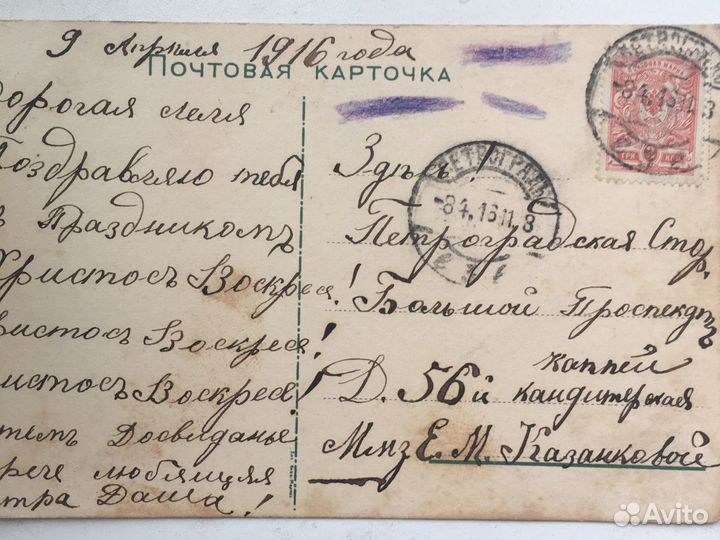 9 Апреля 1916 года
ПОЧТОВАЯ КАРТОЧКА
Дорогая Леля
Поздравляю тебя
с Праздникомъ
Христосъ Воскресе!
Христосъ Воскресе!
Христосъ Воскресе!
Затемъ Досвиданье
горяче любящия
сестра Даша!
Здѣсь!
Петроградская Стор.
Большой Проспектъ
Д. 56й кандитерская
каппей
Е. М. Казанковой
ПЕТРОГРАДЪ
-8 4.16.11.8
ПЕТРОГРАДЪ
-8 4.16.11.8
ТРИ КОП
Avito